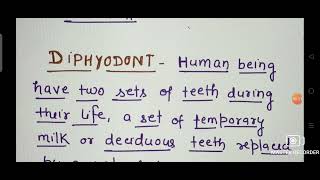 DIPHYODONT - Human being
have two sets of teeth during
their life, a set of temporary
milk or deciduous teeth replaced